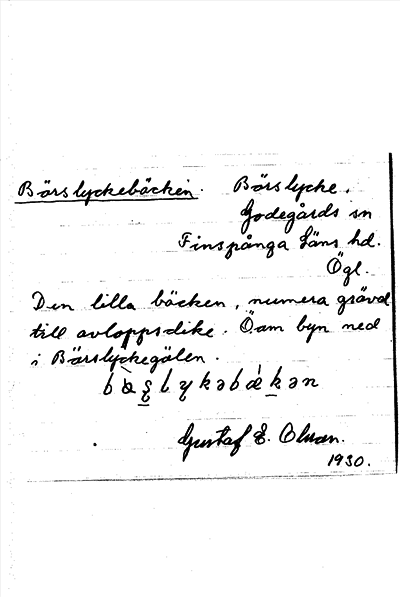 Börslyckebäcken. Börslycke.
Godegårds sn
Finspånga Läns hd.
Ögl.
Den lilla bäcken, numera grävd
till avloppsdike. Öom byn ned
i Börslyckegölen.
Gustaf E.
1930.